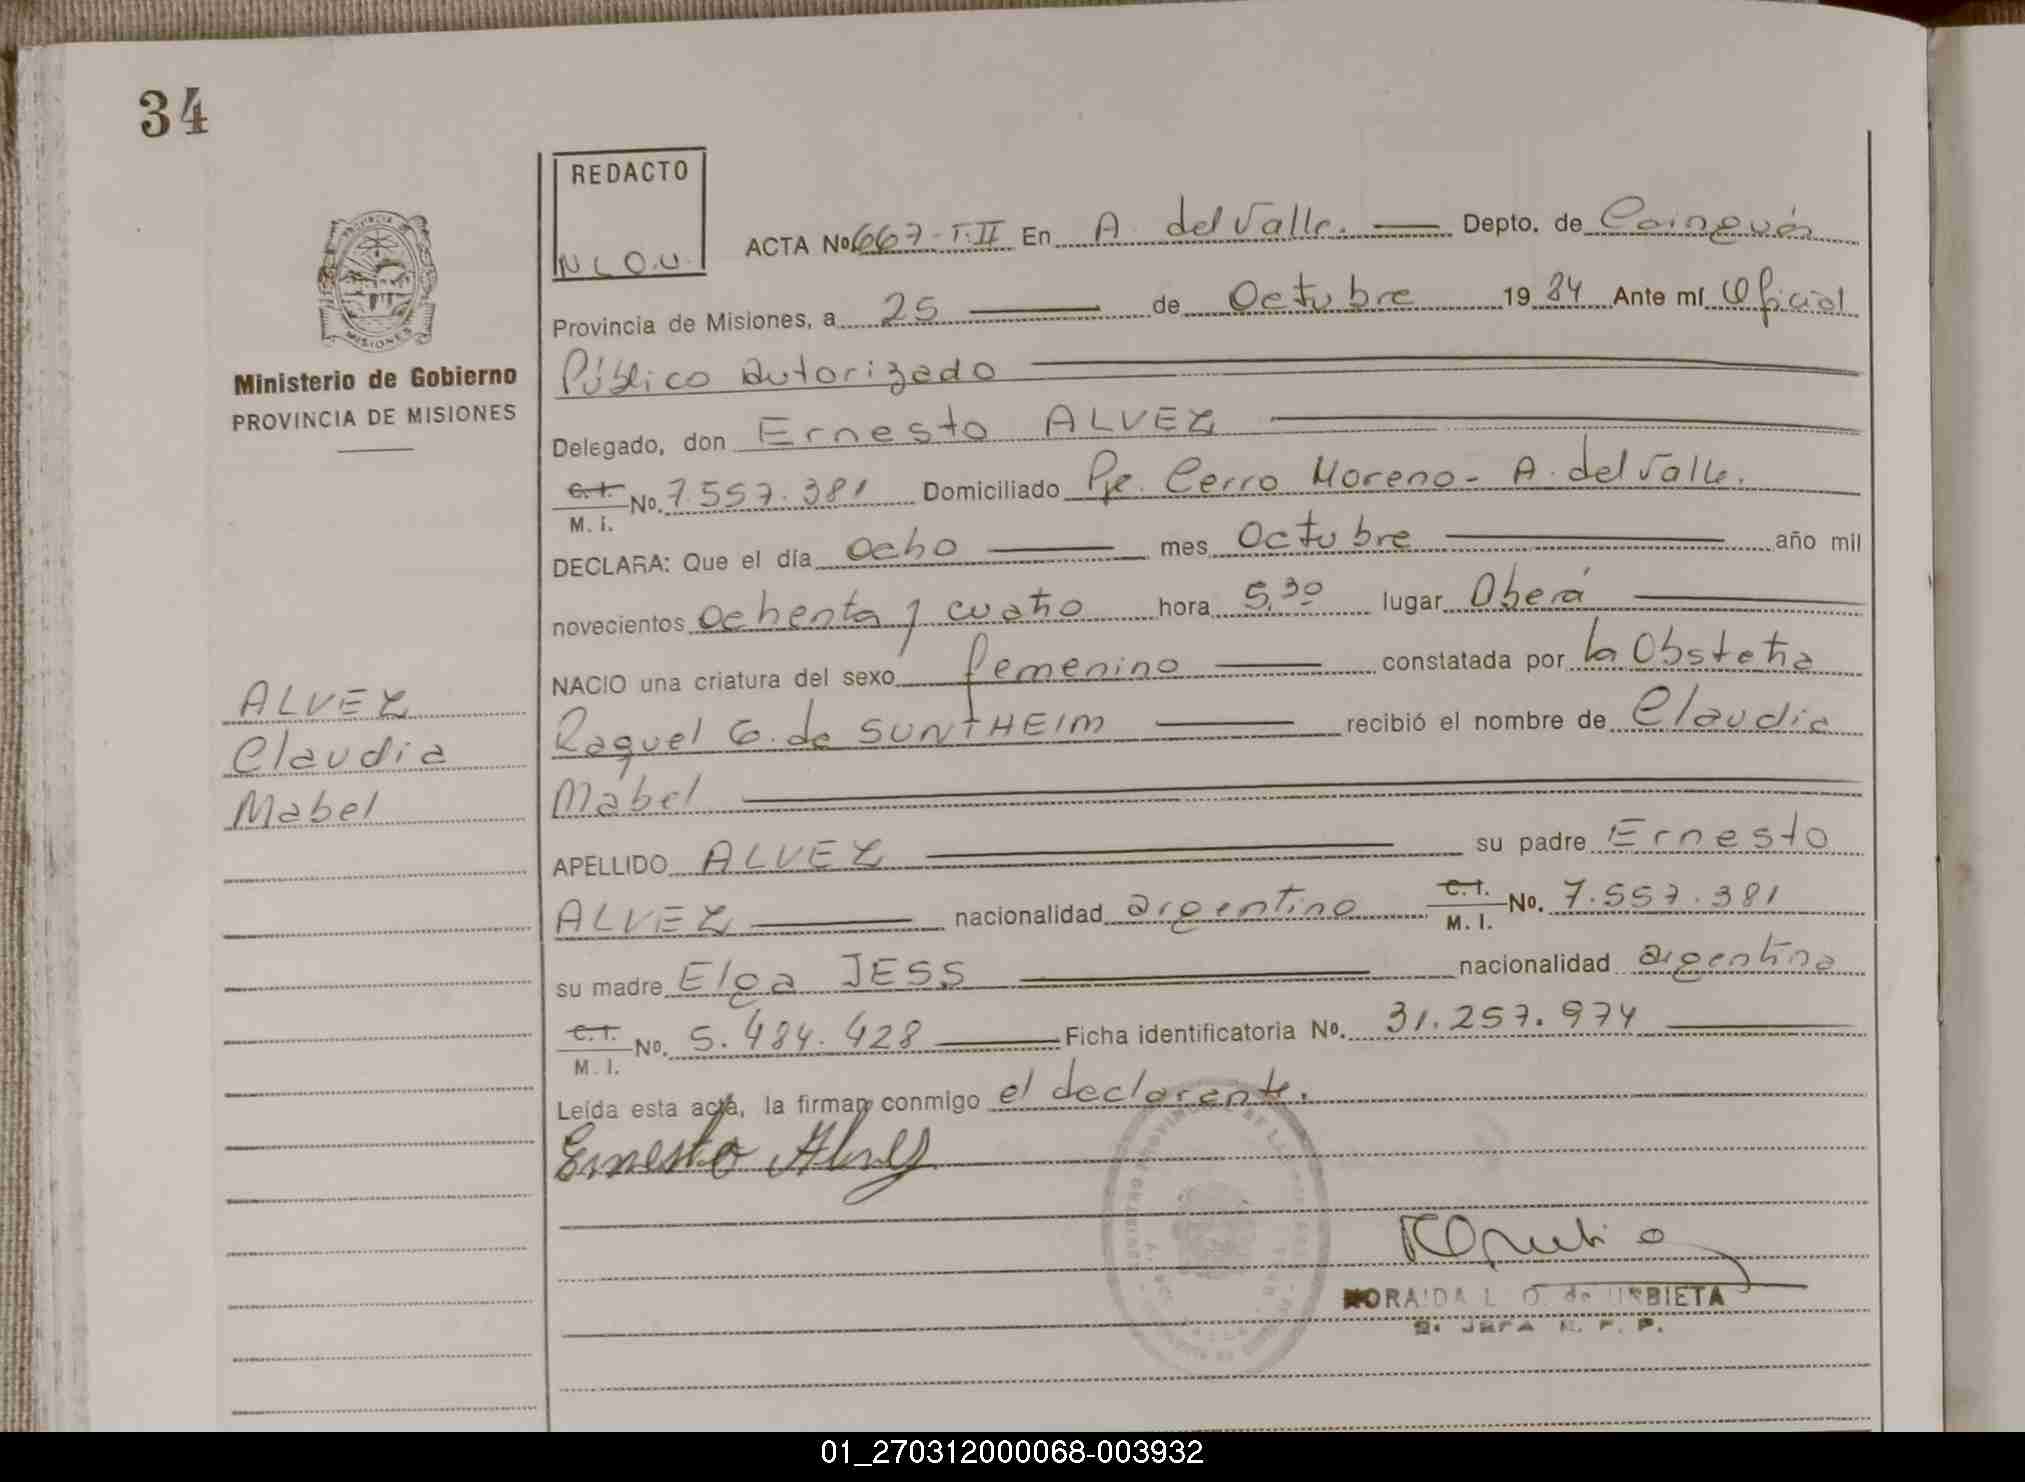 34
REDACTO
N L O. U.
ACTA No 667-T.II En A. del Valle. Depto. de Cainguás
Provincia de Misiones, a 25 de Octubre 1984 Ante mí Oficial
Público autorizado
Ministerio de Gobierno
PROVINCIA DE MISIONES
Delegado, don Ernesto ALVEZ
C. I. M. I. No. 7.557.381 Domiciliado Pje. Cerro Moreno - A. del Valle.
DECLARA: Que el día ocho mes Octubre año mil
novecientos ochenta y cuatro hora 5,30 lugar Oberá
NACIO una criatura del sexo femenino constatada por la Obstetra
Raquel G. de SUNTHEIM recibió el nombre de Claudia
Mabel
ALVEZ
Claudia
Mabel
APELLIDO ALVEZ su padre Ernesto
ALVEZ nacionalidad argentino C. I. M. I. No. 7.557.381
su madre Elga JESS nacionalidad argentina
C. I. M. I. No. 5.484.428 Ficha identificatoria No. 31.257.974
Leída esta acta, la firman conmigo el declarante.
Ernesto Alvez
NORAIDA L. O. de URBIETA
01_270312000068-003932